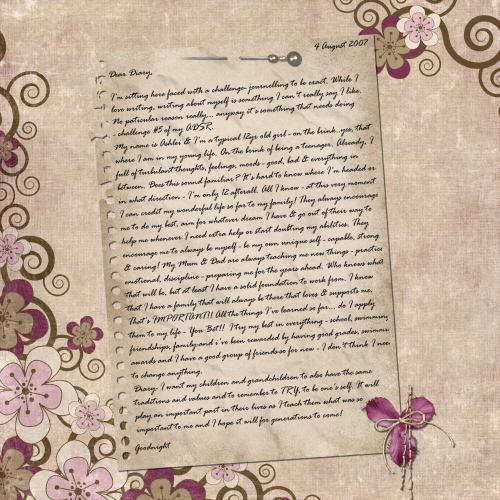 4 August 2007
Dear Diary,
I'm sitting here faced with a challenge- journelling to be exact. While I
love writing, writing about myself is something I can't really say I like.
No paticular reason really... anyway it's something that needs doing
- challenge #5 of my ADSR.
My name is Ashlei & I'm a typical 12yr old girl - on the brink..yes, that
where I am in my young life. On the brink of being a teenager. Already, I
full of turbulant thoughts, feelings, moods - good, bad & everything in
between. Does this sound familiar? It's hard to know where I'm headed or
in what direction - I'm only 12 afterall. All I know - at this very moment
I can credit my wonderful life so far to my family! They always encourage
me to do my best, aim for whatever dream I have & go out their way to
help me whenever I need extra help or start doubting my abilities. They
encourage me to always be myself - be my own unique self - capable, strong
& caring! My Mum & Dad are always teaching me new things - practice
emotional, discipline - preparing me for the years ahead. Who knows what
that will be, but at least I have a solid foundation to work from. I know
that I have a family that will always be there that loves & supports me,
That's IMPORTANT! All the things I've learned so far... do I apply
them to my life - You Bet!! I try my best in everything - school, swimming
friendships, family and i've been rewarded by having good grades, swimmin
awards and I have a good group of friends so for now - I don't think I nee
to change anything.
Diary: I want my children and grandchildren to also have the same
traditions and values and to remember to TRY, to be one's self. It will
play an important part in their lives as I teach them what was so
important to me and I hope it will for generations to come!
Goodnight